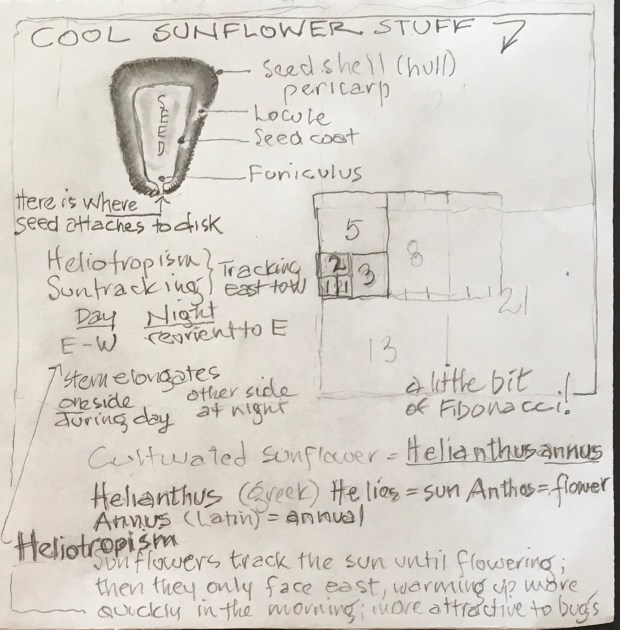 COOL SUNFLOWER STUFF
Seed shell (hull)
pericarp
Locule
Seed coat
Funiculus
SEED
Here is where
seed attaches to disk
Heliotropism } Tracking
Suntracking } east to W
Day Night
E-W reorient to E
stem elongates
one side other side
during day at night
5
8
2
3
1 1
21
13
a little bit
of Fibonacci!
Cultivated sunflower = Helianthus annus
Helianthus (Greek) Helios = sun Anthos = flower
Annus (Latin) = annual
Heliotropism
Sunflowers track the sun until flowering;
then they only face east, warming up more
quickly in the morning; more attractive to bugs